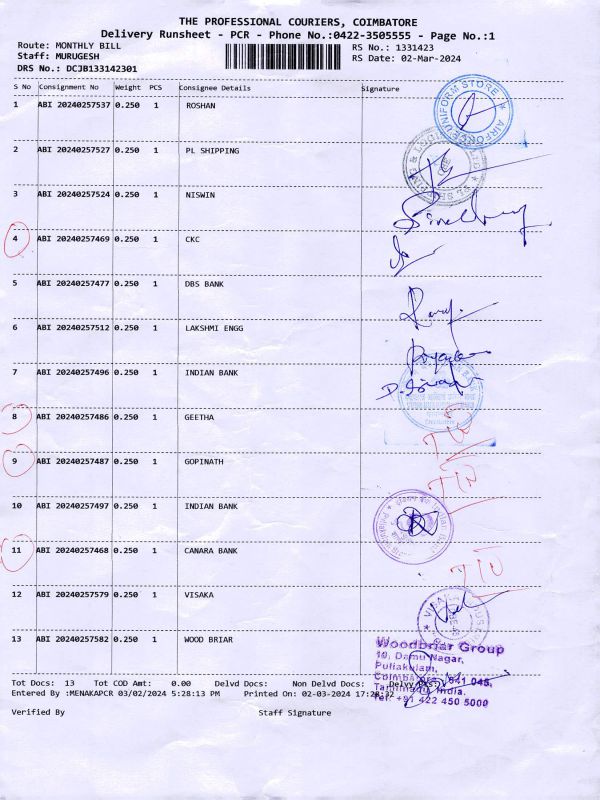 THE PROFESSIONAL COURIERS, COIMBATORE
Delivery Runsheet - PCR - Phone No.:0422-3505555 - Page No.:1
Route: MONTHLY BILL RS No.: 1331423
Staff: MURUGESH RS Date: 02-Mar-2024
DRS No.: DCJB133142301
S No Consignment No Weight PCS Consignee Details Signature
1 ABI 20240257537 0.250 1 ROSHAN
AIRFORCE UNIFORM STORE
2 ABI 20240257527 0.250 1 PL SHIPPING
3 ABI 20240257524 0.250 1 NISWIN
4 ABI 20240257469 0.250 1 CKC
5 ABI 20240257477 0.250 1 DBS BANK
6 ABI 20240257512 0.250 1 LAKSHMI ENGG
7 ABI 20240257496 0.250 1 INDIAN BANK
8 ABI 20240257486 0.250 1 GEETHA
9 ABI 20240257487 0.250 1 GOPINATH
10 ABI 20240257497 0.250 1 INDIAN BANK
11 ABI 20240257468 0.250 1 CANARA BANK
12 ABI 20240257579 0.250 1 VISAKA
13 ABI 20240257582 0.250 1 WOOD BRIAR
Woodbriar Group
10, Damu Nagar,
Puliakulam,
Coimbatore 641 045,
Tamilnadu India.
Tel: +91 422 450 5000
Tot Docs: 13 Tot COD Amt: 0.00 Delvd Docs: Non Delvd Docs: Delvy Pks:
Entered By :MENAKAPCR 03/02/2024 5:28:13 PM Printed On: 02-03-2024 17:28:32
Verified By Staff Signature